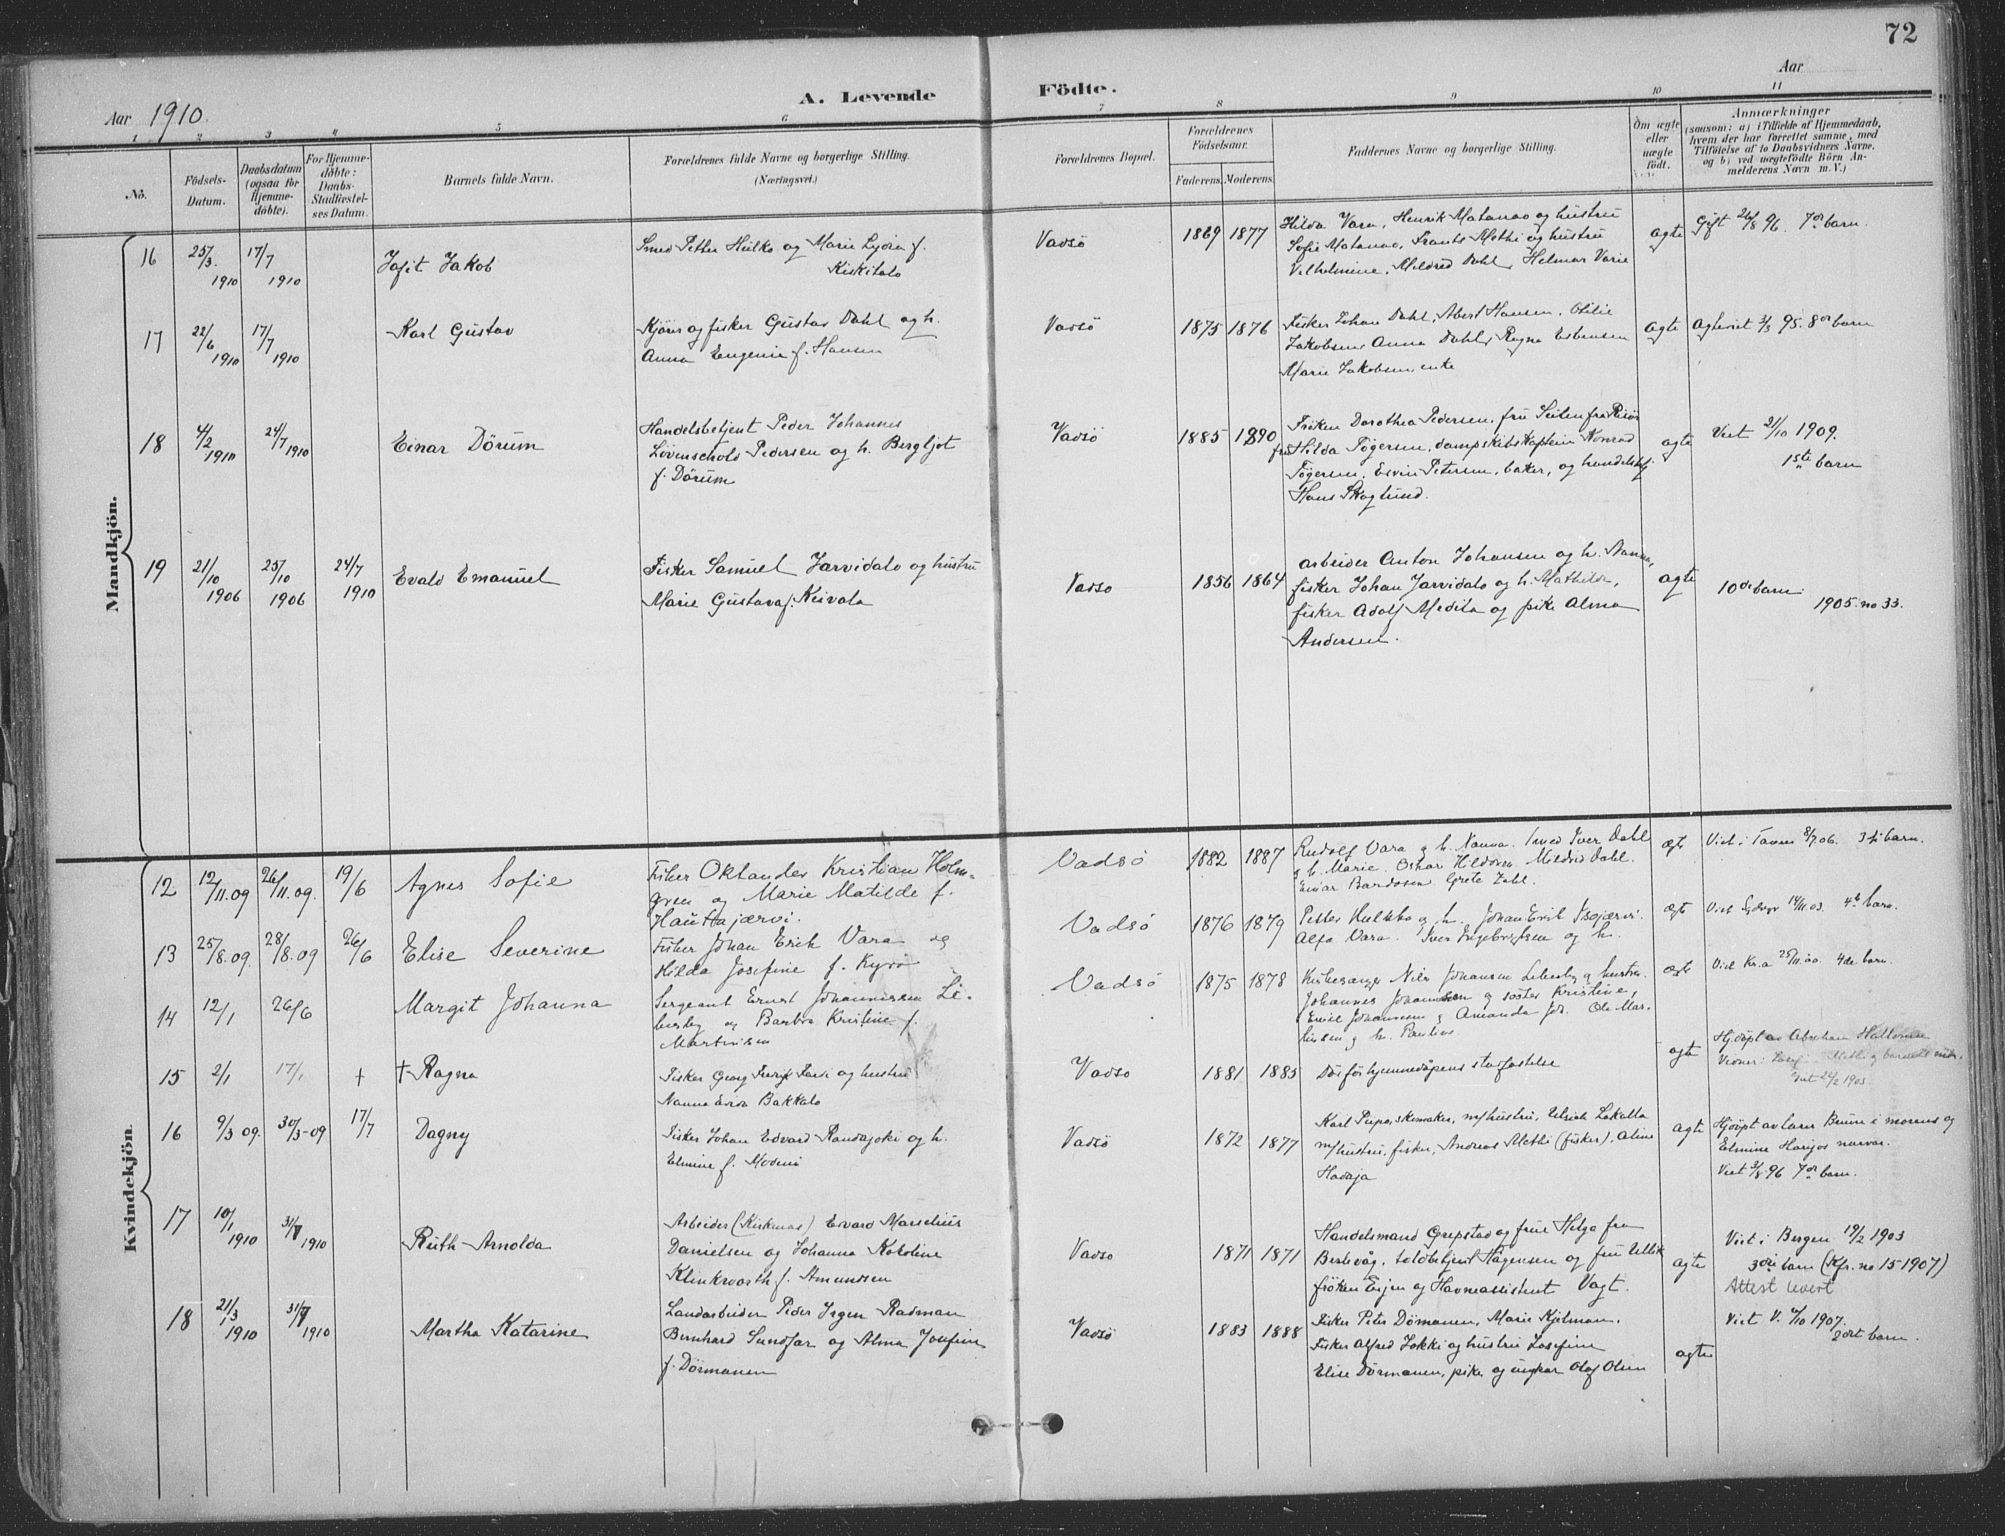 72
Aar 1910.
A. Levende Födte.
Aar
1 2 3 4 5 6 7 8 9 10 11
No.
Födsels-Datum.
Daabsdatum (ogsaa for Hjemmedöbte).
For Hjemmedöbte: Daabs-Stadfæstelses Datum.
Barnets fulde Navn.
Forældrenes fulde Navne og borgerlige Stilling.
(Næringsvei.)
Forældrenes Bopæl.
Forældrenes Födselsaar.
Faderens. Moderens.
Faddernes Navne og borgerlige Stilling.
Om ægte eller uægte födt.
Anmærkninger
(saasom: a) i Tilfælde af Hjemmedaab,
hvem der har forrettet samme, med
Tilföielse af to Daabsvidners Navne.
og b) ved uægtefödte Börn Anmelderens Navn m. V.)
Mandkjön.
16 25/3 1910 17/7 1910 Jafit Jakob
Smed Petter Hulko og Marie Lydia f.
Kiskitalo
Vadsö 1869 1877
Hilda Vara, Henrik Matanao og hustru
Sofie Matanao, Frants Methi og hustru
Vilhelmine, Mildred Dahl, Helmar Varie
ægte Gift 26/8 96. 7de barn.
17 22/6 1910 17/7 1910 Karl Gustav
Kjörer og fisker Gustav Dahl og h.
Anna Eugenie f. Hansen
Vadsö 1875 1876
Fisker Johan Dahl, Abert Hansen, Otilie
Jakobsen, Anna Dahl, Ragna Esbensen
Marie Jakobsen, enke
ægte Agteviet 3/3 95. 8de barn
18 4/2 1910 24/7 1910 Einar Dörum
Handelsbetjent Peder Johannes
Lövenschold Pedersen og h. Bergljot
f. Dörum
Vadsö 1885 1890
Fröken Dorothea Pedersen, fru Seiten fra Risör
fru Hilda Tögersen, dampskibskaptein Konrad
Tögersen, Ervin Petersen, baker, og handelsbetj.
Hans Skoglund.
ægte Viet 21/10 1909.
1ste barn
19 21/10 1906 25/10 1906 24/7 1910 Evald Emanuel
Fisker Samuel Jarvidalo og hustru
Marie Gustava f. Keivala
Vadsö 1856 1864
Arbeider Anton Johansen og h. Nanna,
fisker Johan Jarvidalo og h. Mathilde,
fisker Adolf Medita og pike Alma
Andersen.
ægte 10de barn.
1905. no 33.
Kvindekjön.
12 12/11.09 26/11.09. 19/6 Agnes Sofie
Fisker Oktander Kristian Holm-
gren og Marie Matilde f.
Hauttajærvi.
Vadsö 1882 1887
Rudolf Vara & h. Nanna. Smed Iver Dahl
& h. Marie. Oskar Hildonen. Mildrid Dahl.
Einar Bardosen. Grete Dahl.
ægte Viet i Tanen 8/7 06. 3die barn.
13 25/8.09. 28/8.09 26/6 Elise Severine
Fisker Johan Erik Vara og
Hilda Josefine f. Kyrö
Vadsö 1876 1879
Petter Hulkko & h. Johan Erik Isojærvi.
Alfa Vara. Iver Ingebrigtsen og h.
ægte Viet 14/11.03. 4de barn.
14 12/1 26/6 Margit Johanna
Sergeant Ernst Johannessen Le-
besby og Barbra Kristine f.
Martinsen
Vadsö 1875 1878
Kirkesanger Nils Johansen Lebesby & hustru.
Johannes Johannessen & söster Kristine,
Emil Johannesen & Amanda Joh. Ole Mar-
tinsen & h. Pauline.
ægte Viet Kr.a 25/11.00. 4de barn.
15 2/1 17/1 + + Ragna
Fisker Georg Fredrik Farsi og hustru
Nanna Evira Bakkalo
Vadsö 1881 1885 Död för hjemmedåpens stadfæstelse
ægte Hjdöpt av Abraham
16 9/3 09. 30/3-09 17/7 Dagny
Fisker Johan Edvard Randajoki og h.
Elmine f. Modenö
Vadsö 1872 1877
Karl Piipo, skomaker, m/hustru, Ulrick Lakalla
m/hustru, fisker, Andreas Methi (fisker), Aline
Hadaja
ægte Hjdöpt av lærer Bruun i morens og
Elmine Harijos nærvær.
Viet 2/8 96 7de barn.
17 10/1 1910 31/7 1910 Ruth Arnolda
Arbeider (Kirkenes) Edvard Marselius
Danielsen og Johanna Karoline
Klinkworth f. Amundsen
Vadsö 1871 1871
Handelsmand Grepstad og frue Helga fra
Berlevåg, toldbetjent Hagensen og fru Ullik
fröken Eijen og Havneassistent Vagt.
ægte Viet i Bergen 19/2 1903
3die barn (Kfr. no 15 1907)
Attest levert
18 21/3 1910 31/7 1910 Martha Katarine
Landarbeider Peder Irgen Radman
Bernhard Sundfær og Alma Josefine
f. Dörmanen
Vadsö 1883 1888
Fisker Peter Dörmanen, Marie Kjelman,
Fisker Alfred Lokki og hustru Josefine
Elise Dörmanen, pike, og ungkar Olaf Olsen
ægte Viet V. 6/10 1907.
2det barn.